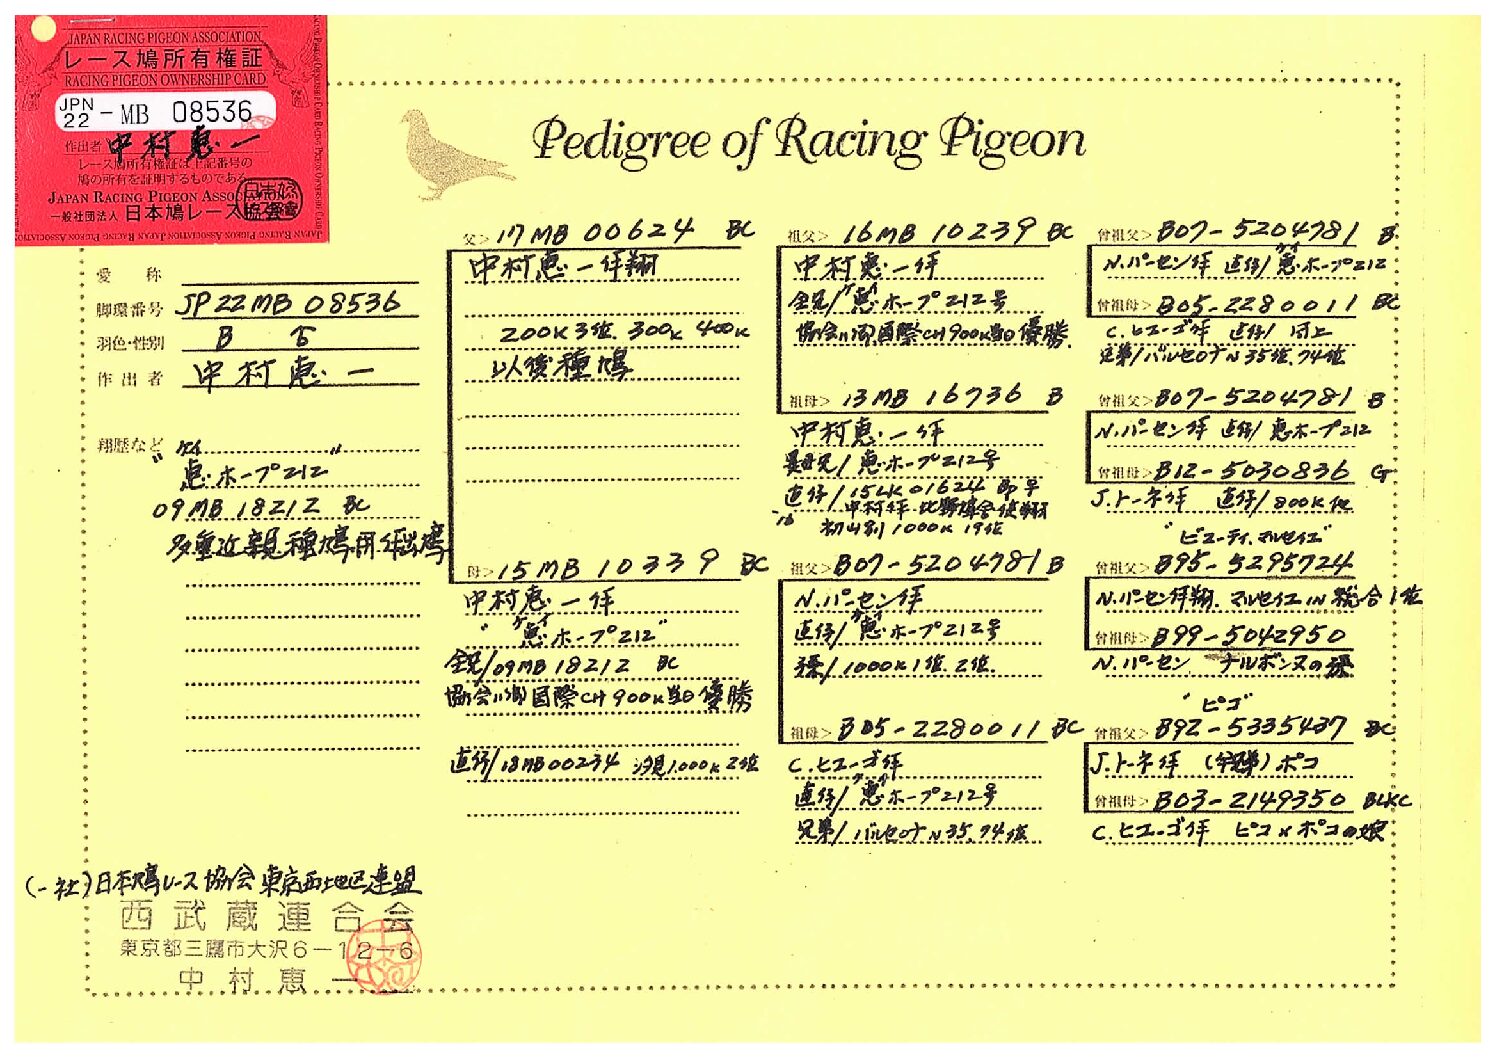 JAPAN RACING PIGEON ASSOCIATION
レース鳩所有権証
RACING PIGEON OWNERSHIP CARD
JPN 22 - MB 08536
作出者 中村恵一
レース鳩所有権証は上記番号の
鳩の所有を証明するものである。
JAPAN RACING PIGEON ASSOCIATION
一般社団法人 日本鳩レース協会
Pedigree of Racing Pigeon
愛称
脚環番号 JP22MB08536
羽色・性別 B ♂
作出者 中村恵一
翔歴など
"恵ホープ212"
ケイ
09MB18212 BC
多重近親種鳩
父> 17MB00624 BC
中村恵一作翔
200K3位. 300K 400K
以後種鳩
母> 15MB10339 BC
中村恵一作
"恵ホープ212"
ケイ
全兄/09MB18212 BC
協会川御国際CH900K当日優勝
直仔/18MB00234 汐見1,000K2位
祖父> 16MB10239 BC
中村恵一作
全兄/恵ホープ212号
ケイ
協会川御国際CH900K当日優勝.
祖母> 13MB16736 B
中村恵一作
異母兄/恵ホープ212号
直仔/15LK01624
初山別1000K19位
祖父> B07-5204781 B
N.パーセン作
直仔/恵ホープ212号
ケイ
孫/1000K1位.2位.
祖母> B05-2280011 BC
C.ヒューゴ作
直仔/恵ホープ212号
ケイ
兄弟/バルセロナN35.74位
曾祖父> B07-5204781 B
N.パーセン作 直仔/恵ホープ212
ケイ
曾祖母> B05-2280011 BC
C.ヒューゴ作 直仔/同上
兄弟/バルセロナN35位.74位
曾祖父> B07-5204781 B
N.パーセン作 直仔/恵ホープ212
曾祖母> B12-5030836 G
J.トーネ作 直仔/800K
"ビューティ.マルセイユ"
曾祖父> B95-5295724
N.パーセン作翔. マルセイユIN総合1位
曾祖母> B99-5042950
N.パーセン ナルボンヌの孫
"ピコ"
曾祖父> B92-5335437 BC
J.トーネ作 (全兄弟)ポコ
曾祖母> B03-2149350 BLKC
C.ヒューゴ作 ピコ×ポコの娘
(一社)日本鳩レース協会東京西地区連盟
西武蔵連合会
東京都三鷹市大沢6-12-6
中村恵一